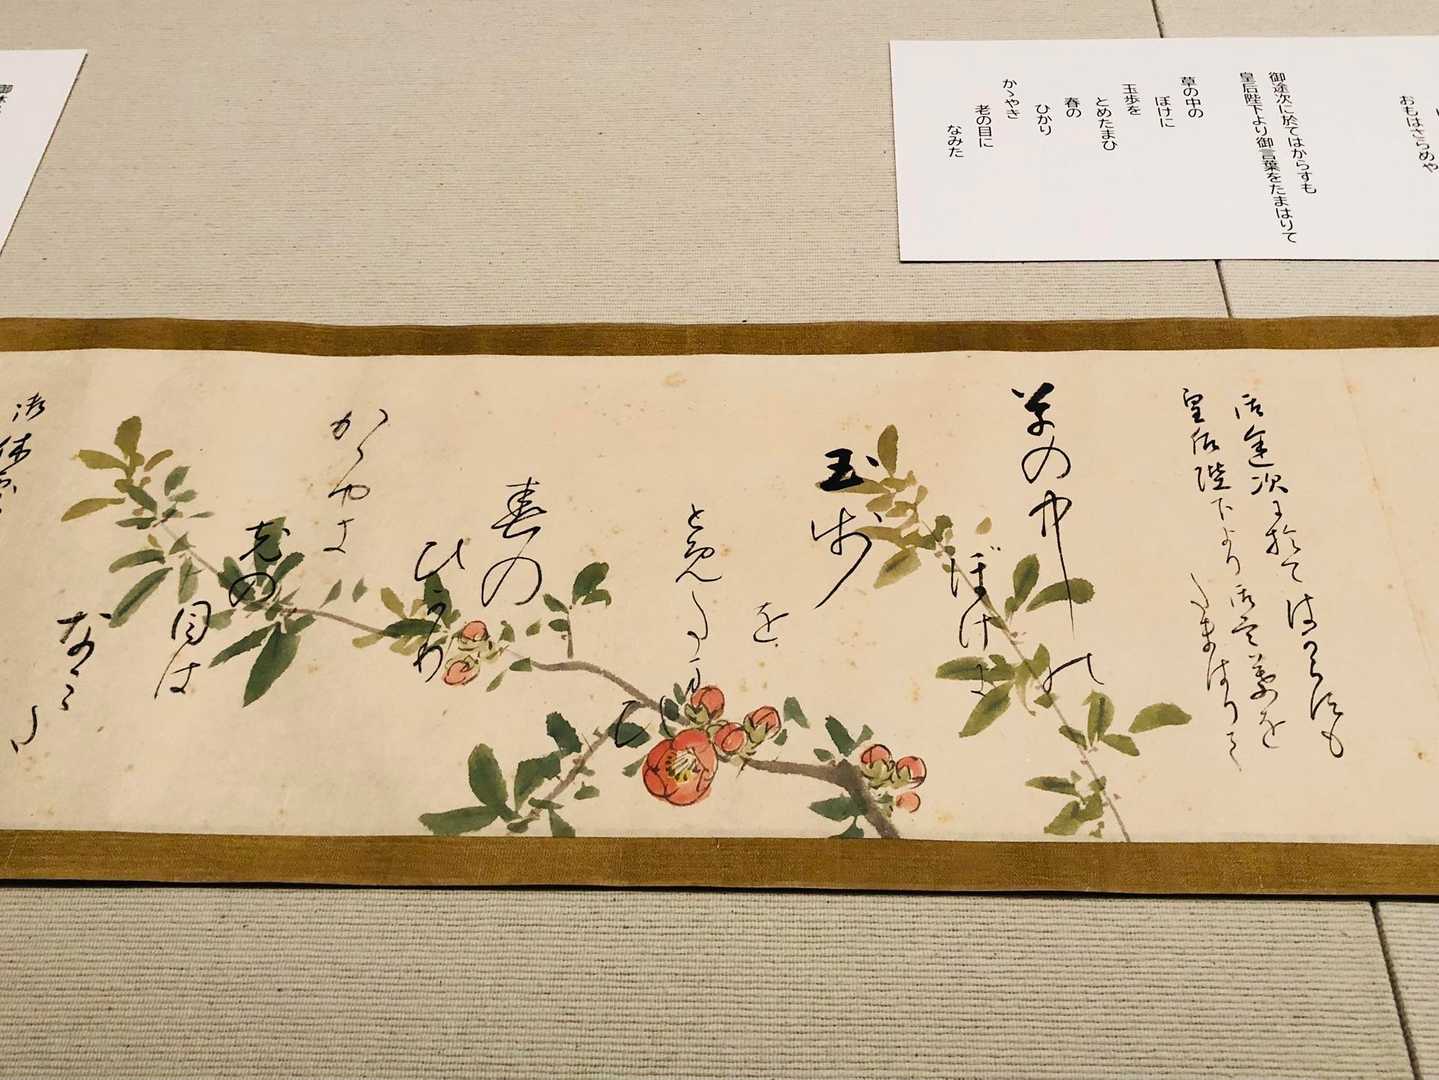 おもはさらめや
御途次に於てはからすも
皇后陛下より御言葉をたまはりて
草の中の
ぼけに
玉歩を
とめたまひ
春の
ひかり
かゝやき
老の目に
なみた
御休
御途次に於てはからすも
皇后陛下より御言葉を
たまはりて
草の中の
ぼけに
玉歩
を
とめたまひ
春の
ひかり
かゝやき
老の
目に
なみた
御休